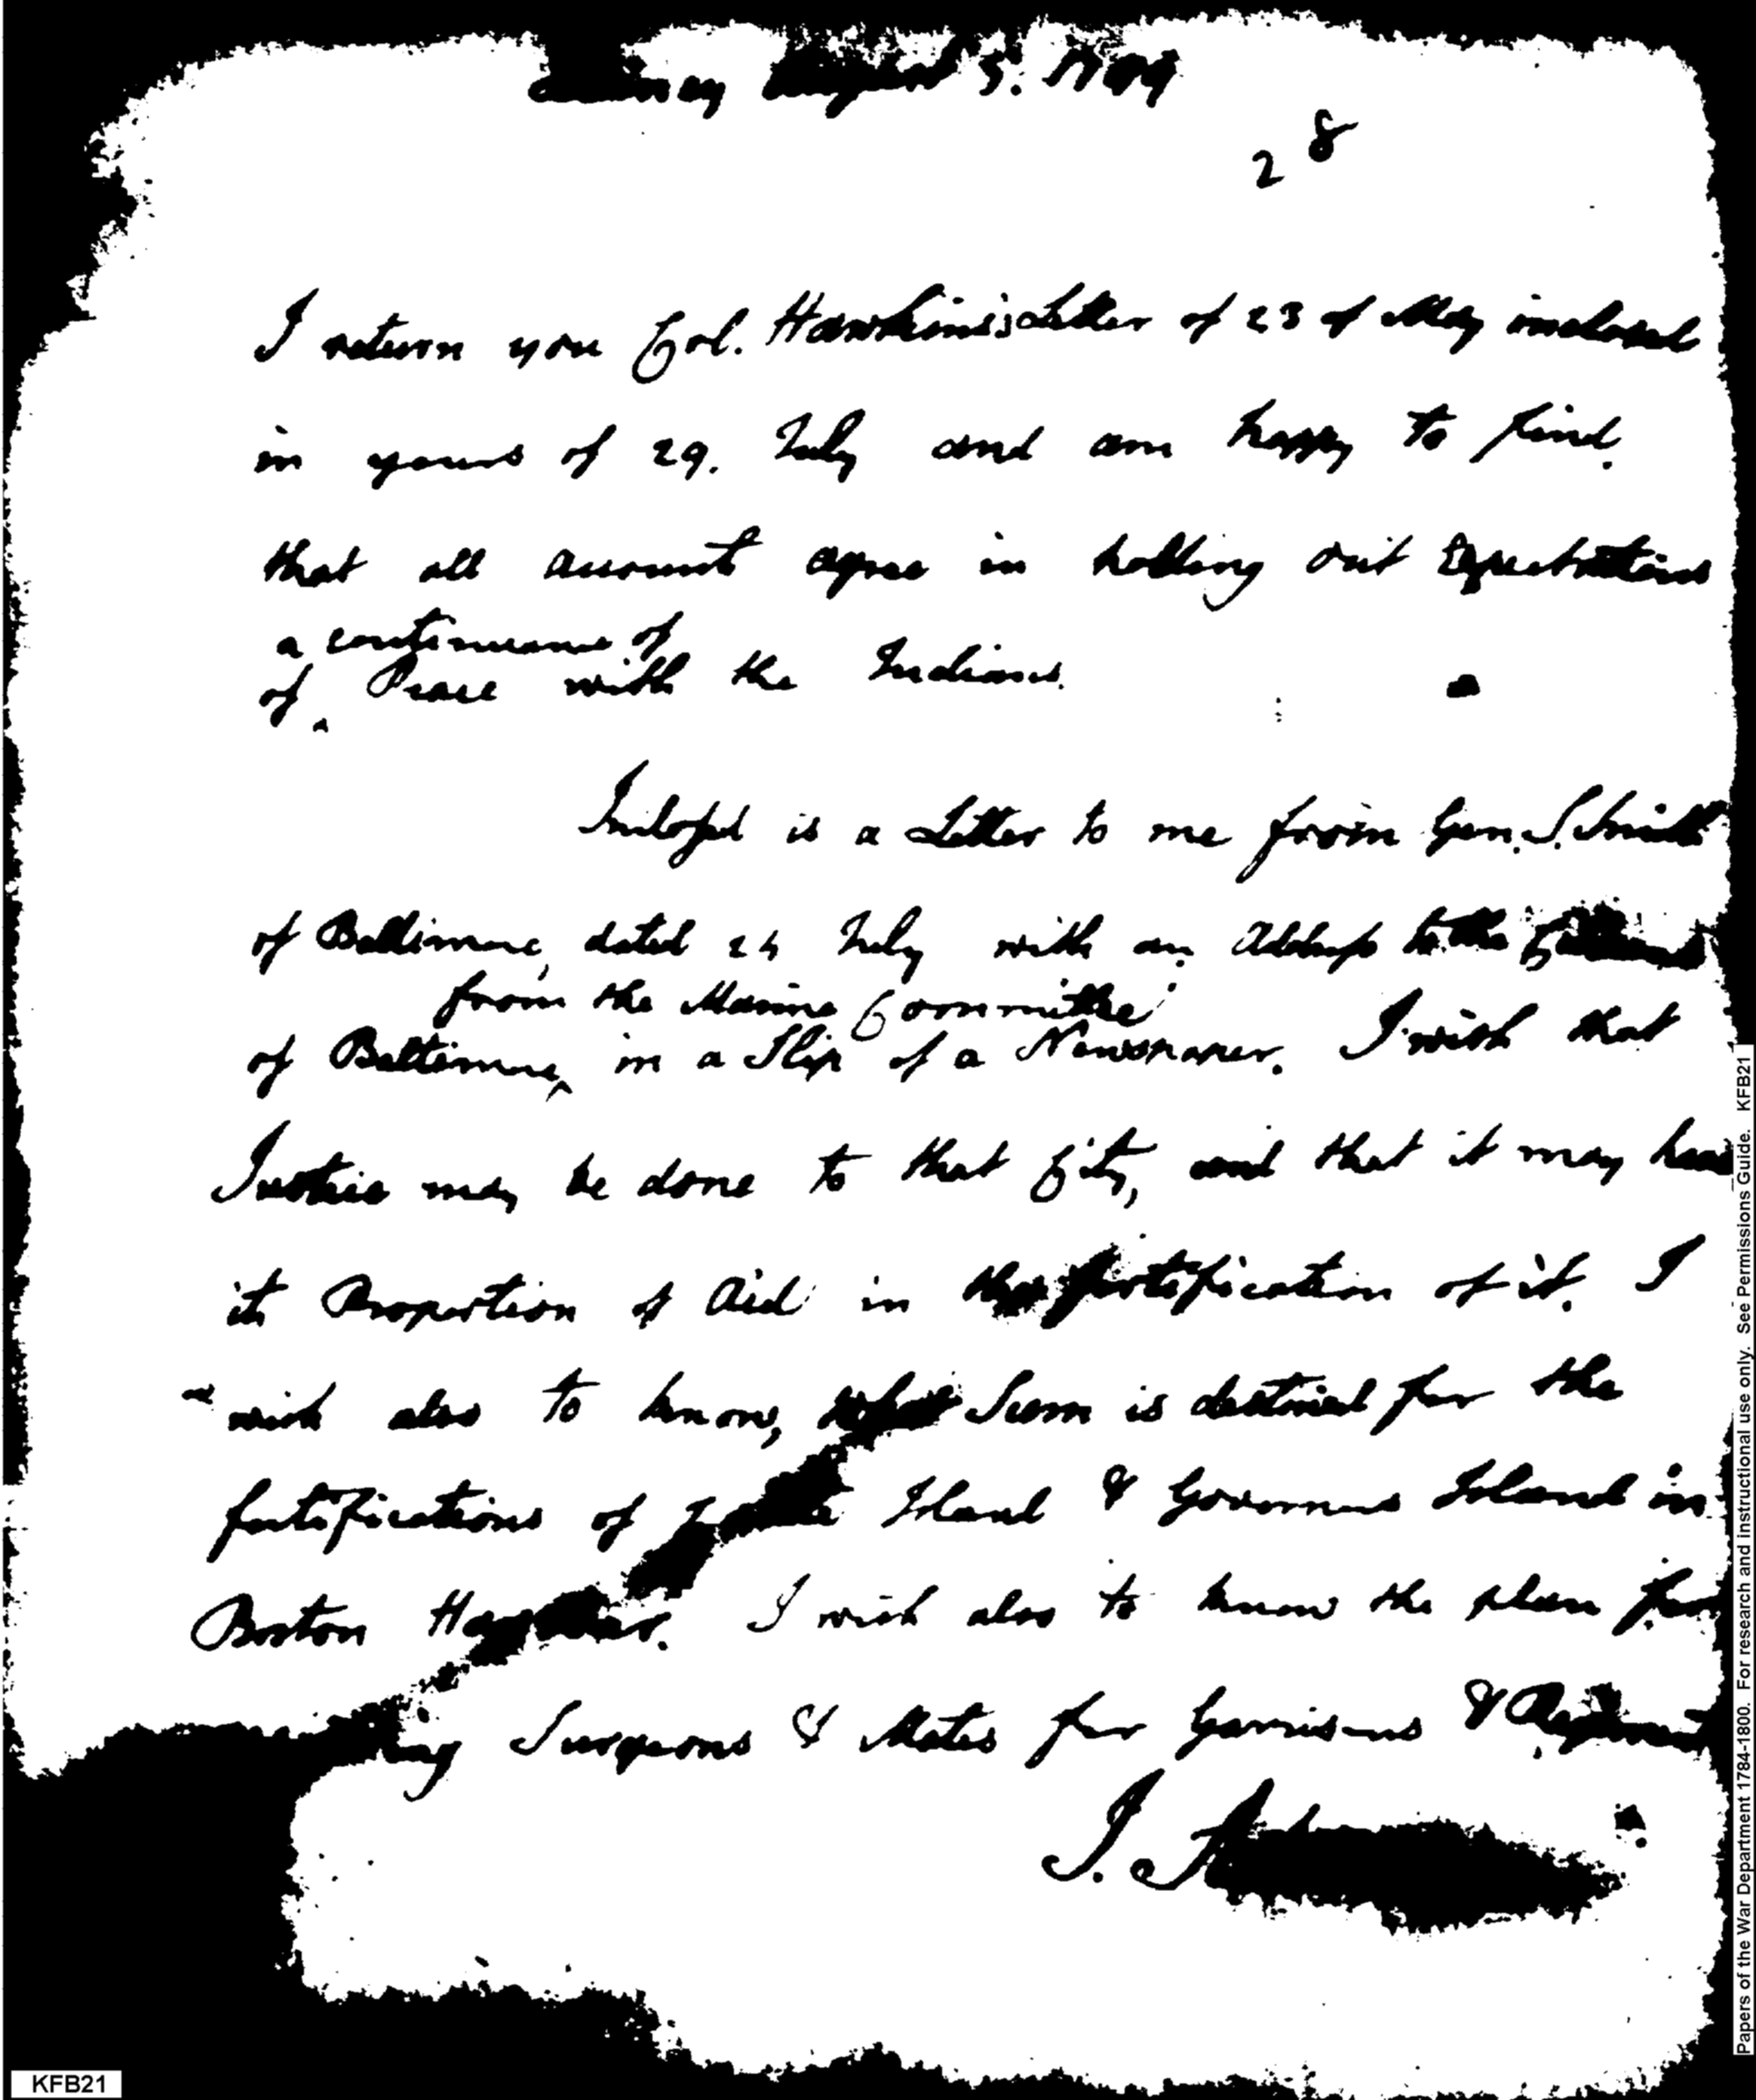 Quincy August 5. 1799
28
I return you Col. Hawkins's Letter of 23 of May inclosed
in yours of 29. July and am happy to find
that all account agree in holding out Expectations
a continuance of
of Peace with the Indians.
Inclosed is a Letter to me from Gen. S. Smith
of Baltimore, dated 24 July with an Address to the Citizens
from the Marine Committee
of Baltimore, in a Slip of a Newspaper. I wish that
Justice may be done to that City, and that it may have
its Proportion of Aid in the fortification of it. I
wish also to know, what Sum is destined for the
fortifications of Castle Island & Governours Island in
Boston Harbour. I wish also to know the plan for
Surgeons & Mates for Garrisons &
J. Adams
KFB21
Papers of the War Department 1784-1800. For research and instructional use only. See Permissions Guide. KFB21